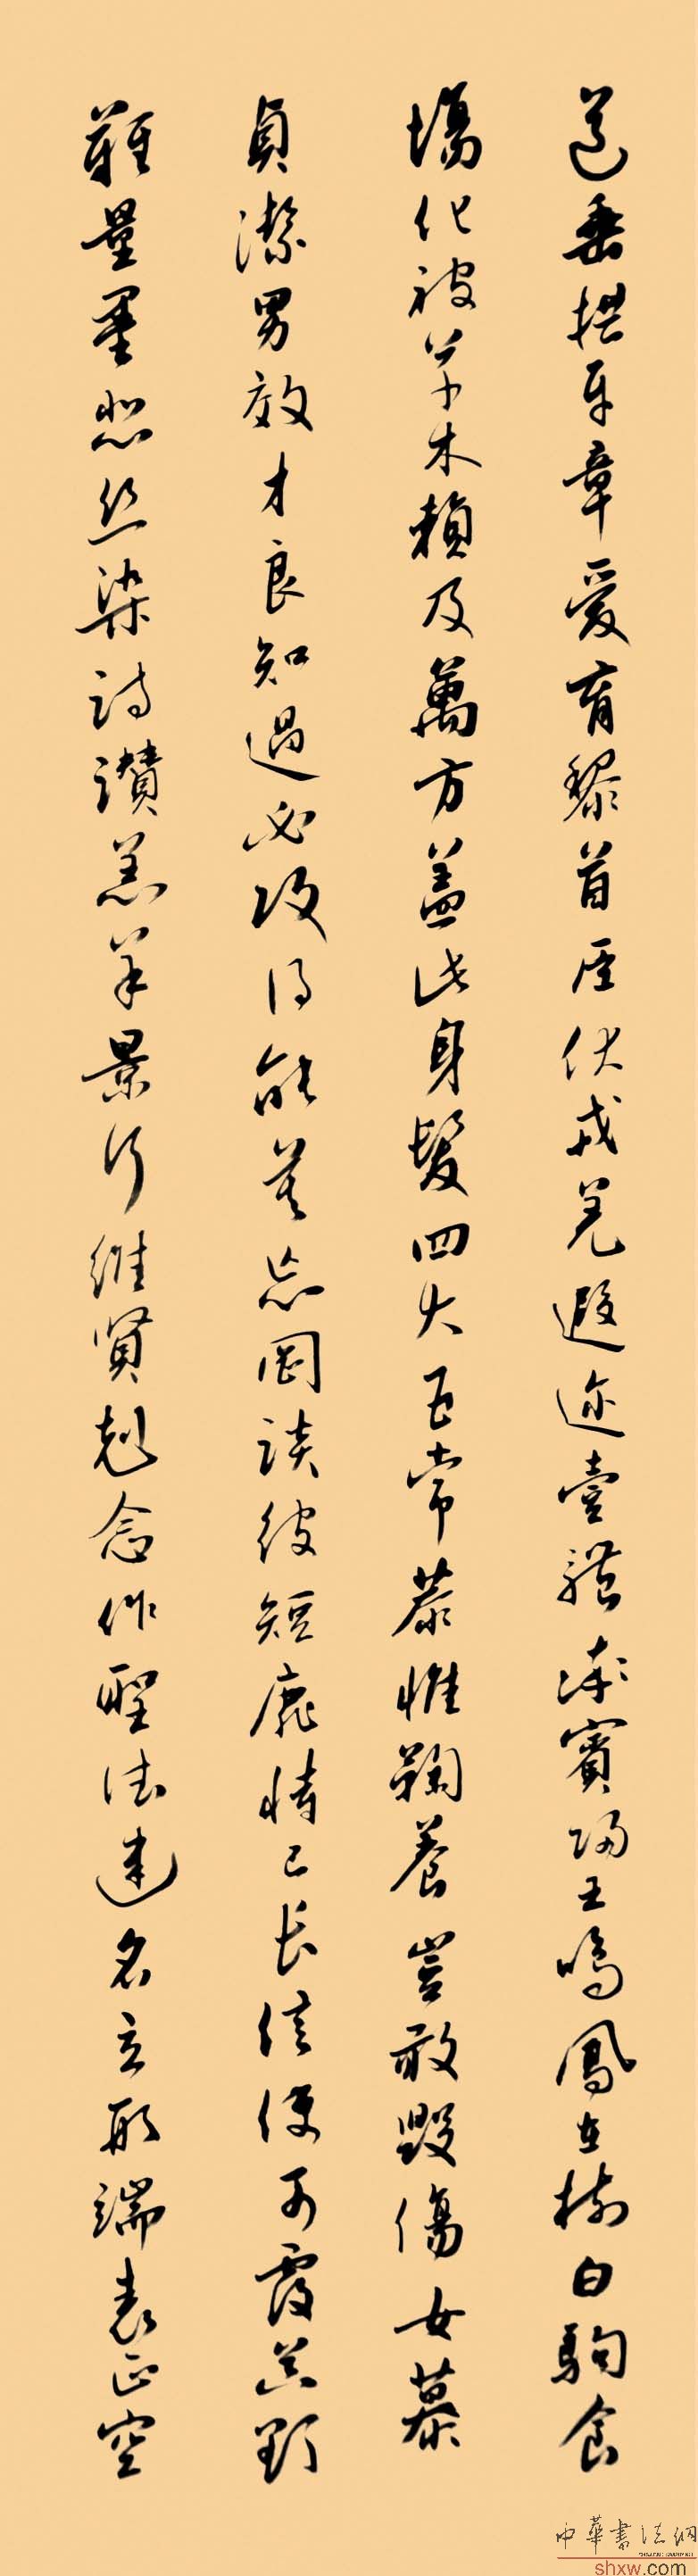 道垂拱平章愛育黎首臣伏戎羌遐迩壹體率賓歸王鳴鳳在樹白駒食
場化被草木賴及萬方蓋此身髮四大五常恭惟鞠養豈敢毀傷女慕
貞潔男效才良知過必改得能莫忘罔談彼短靡恃己長信使可覆器欲
難量墨悲絲染詩讚羔羊景行維賢剋念作聖德建名立形端表正空
中華書法網
shxw.com